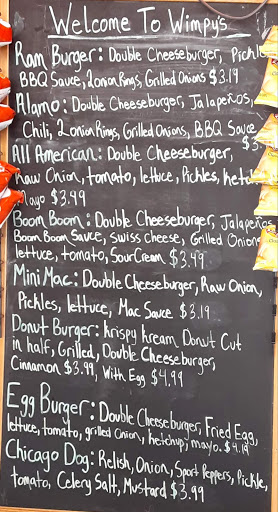 Welcome To Wimpy's
Ram Burger: Double Cheeseburger, Pickle
BBQ Sauce, 2 onion Rings, Grilled Onions $3.19
Alamo: Double Cheeseburger, Jalapeños,
Chili, 2 onion Rings, Grilled Onions, BBQ Sauce
$3.
All American: Double Cheeseburger,
Raw Onion, tomato, lettuce, Pickles, Ketc
Mayo $3.49
Boom Boom: Double Cheeseburger, Jalapeños
Boom Boom Sauce, Swiss cheese, Grilled Onions
lettuce, tomato, Sour Cream $3.49
Mini Mac: Double Cheeseburger, Raw Onion,
Pickles, lettuce, Mac Sauce $3.19
Donut Burger: Krispy Kream Donut Cut
in half, Grilled, Double Cheeseburger,
Cinnamon $3.99, With Egg $4.99
Egg Burger: Double Cheeseburger, Fried Egg,
lettuce, tomato, grilled Onion, ketchup, mayo. $4.19
Chicago Dog: Relish, Onion, Sport Peppers, Pickle,
tomato, Celery Salt, Mustard $3.99